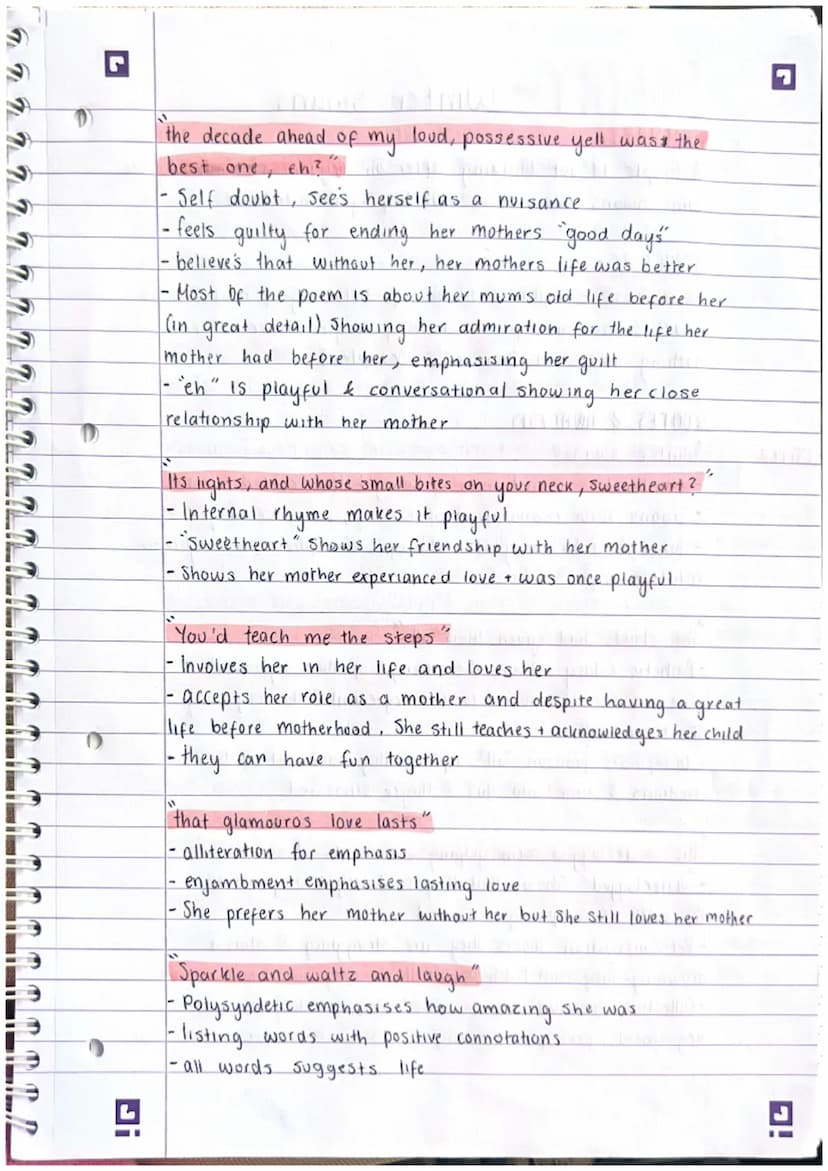 "the decade ahead of my loud, possessive yell was the
best one, eh?"
- Self doubt, see's herself as a nuisance
- feels guilty for ending her mothers "good days"
- believe's that without her, her mothers life was better
- Most of the poem is about her mums old life before her
(in great detail) Showing her admiration for the life her
mother had before her, emphasising her guilt
- "eh" is playful & conversational showing her close
relationship with her mother
"Its lights, and whose small bites on your neck, sweetheart?"
- Internal rhyme makes it playful
- "Sweetheart" shows her friendship with her mother
- Shows her mother experianced love + was once playful
"You'd teach me the steps"
- Involves her in her life and loves her
- accepts her role as a mother and despite having a great
life before motherhood, she still teaches + acknowledges her child
- they can have fun together
"that glamouros love lasts"
- alliteration for emphasis
- enjambment emphasises lasting love
- She prefers her mother without her but she still loves her mother
"Sparkle and waltz and laugh"
- Polysyndetic emphasises how amazing she was
- listing words with positive connotations
- all words suggests life